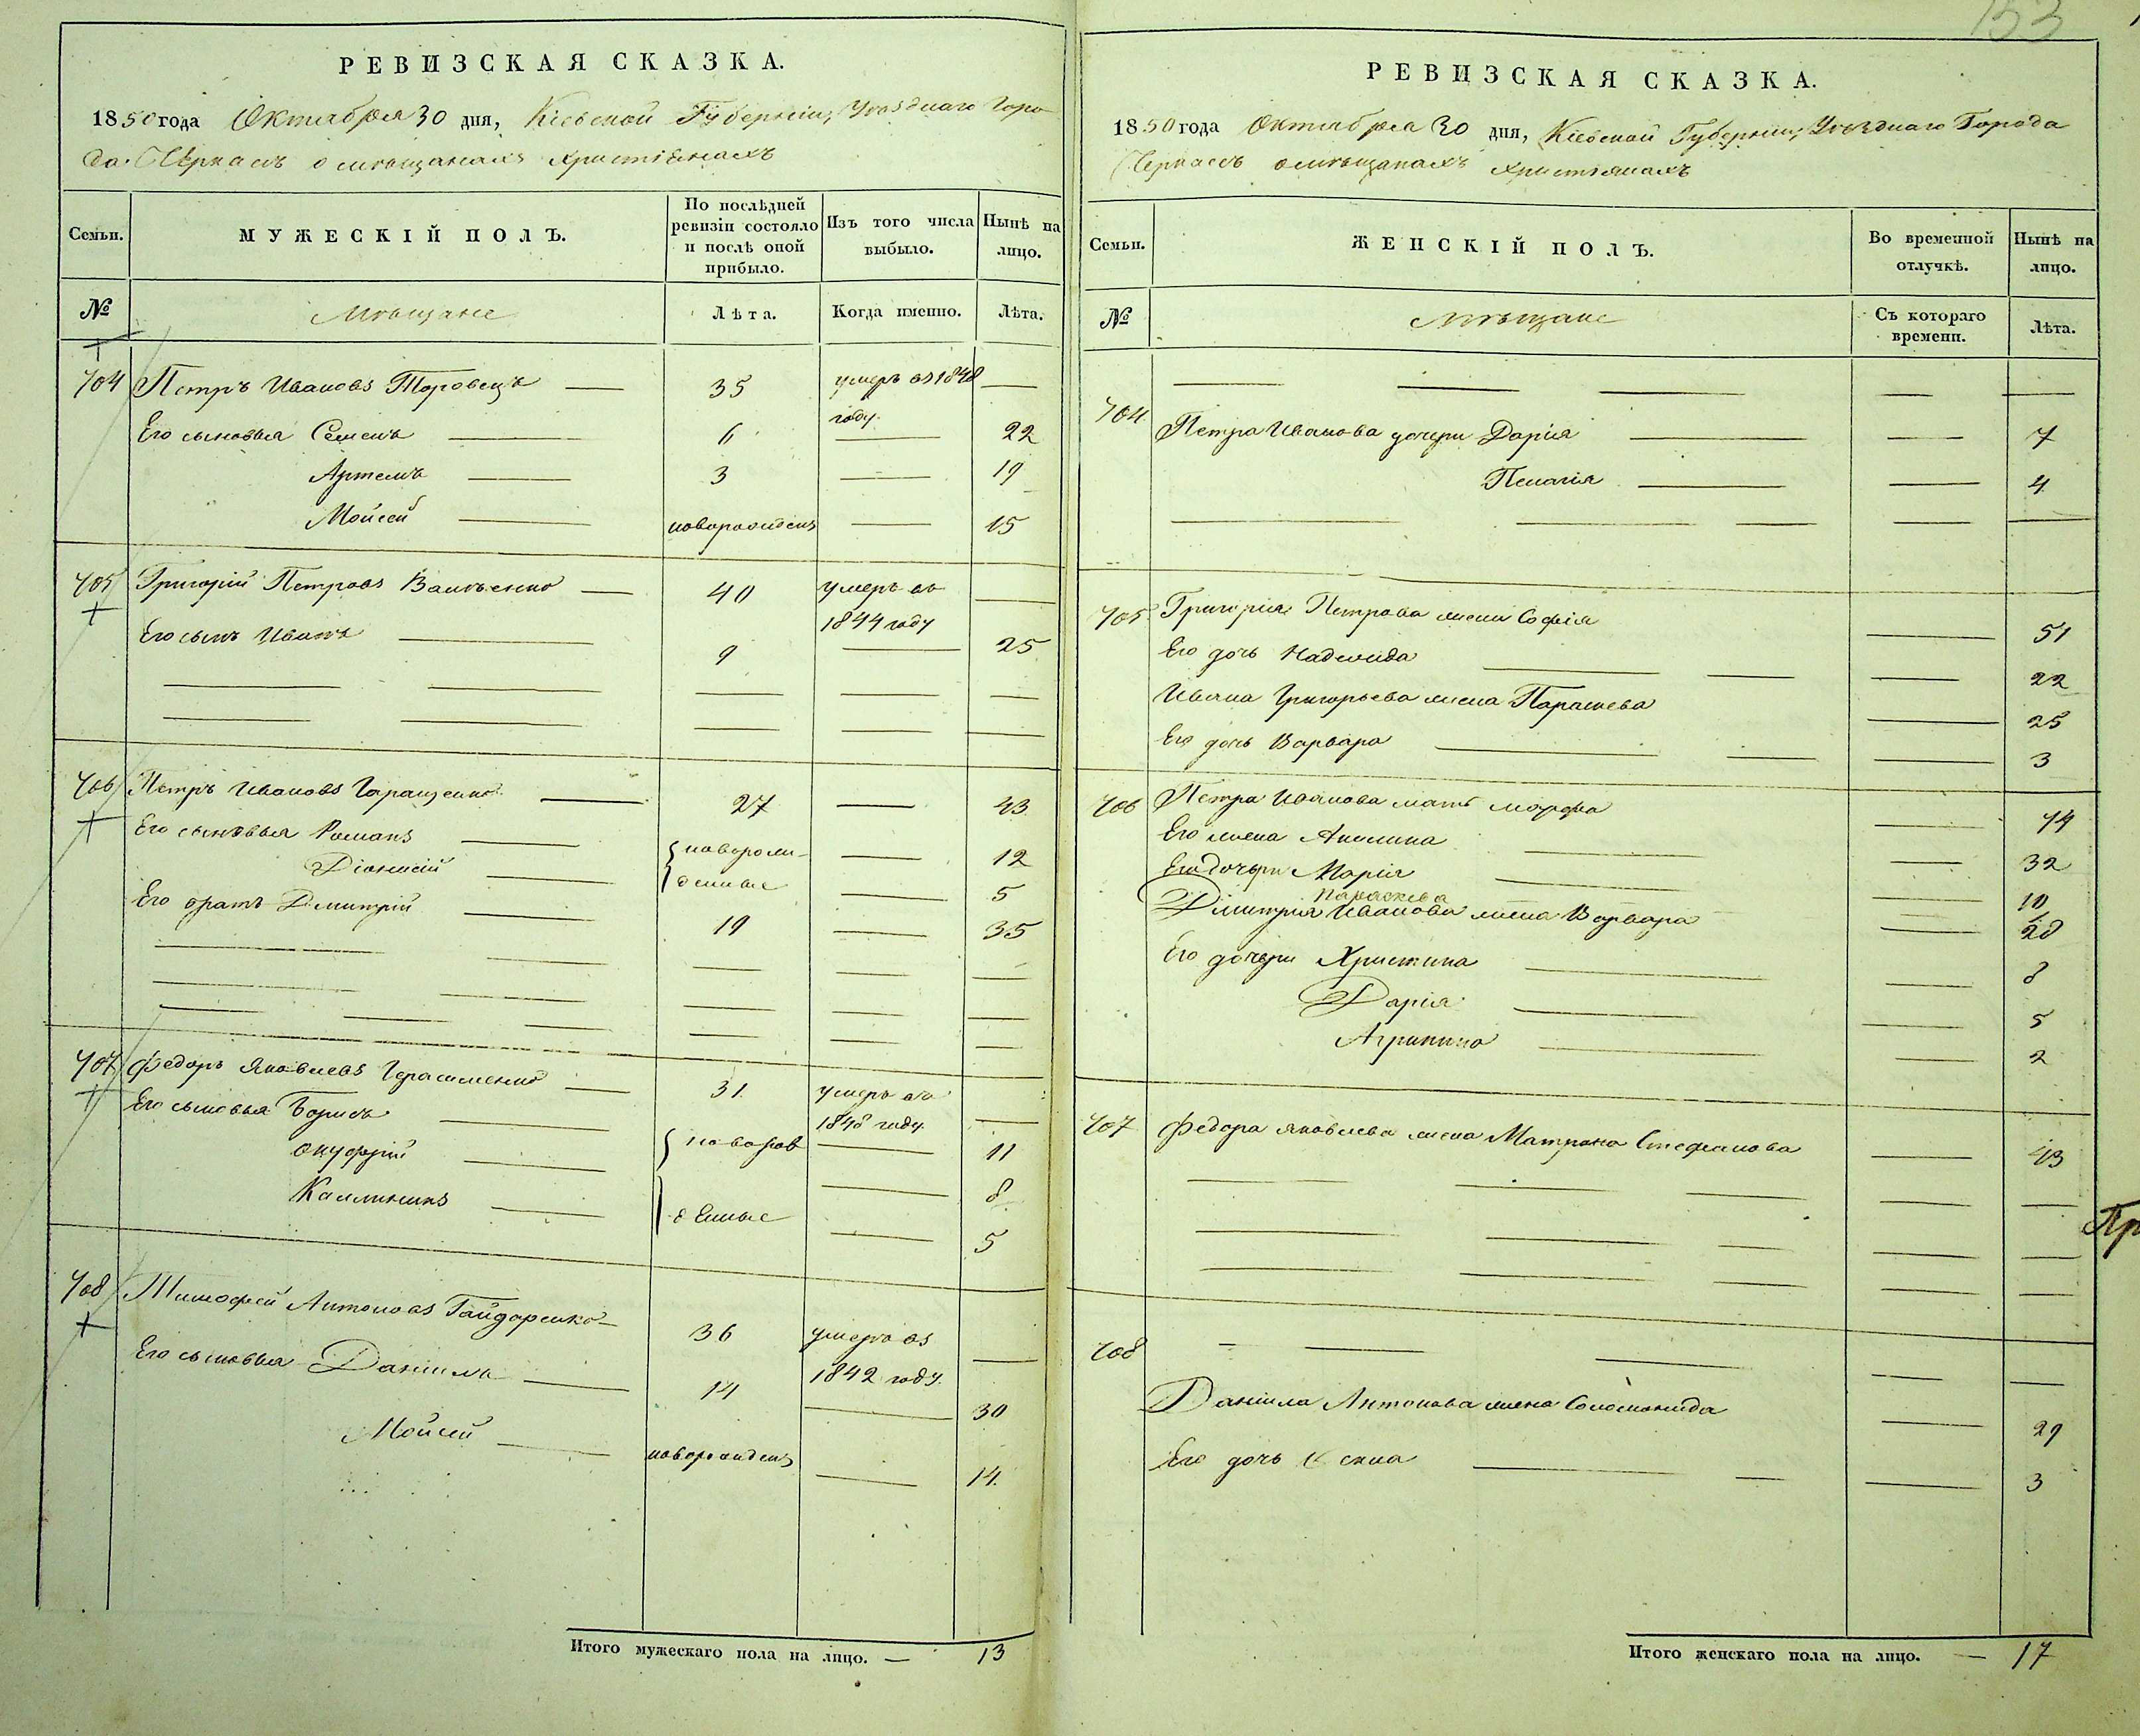 153
РЕВИЗСКАЯ СКАЗКА.
1850 года Октября 30 дня, Кіевской Губерніи, Уѣзднаго Горо-
да Черкасъ о мѣщанахъ христіянахъ
Семьи.
МУЖЕСКІЙ ПОЛЪ.
По послѣдней ревизіи состояло и послѣ оной прибыло.
Изъ того числа выбыло.
Нынѣ на лицо.
№
Мѣщане
Лѣта.
Когда именно.
Лѣта.
704 Петръ Ивановъ Торовецъ — 35 умеръ въ 1848 году —
Его сыновья Семенъ — 6 — 22
Артемъ — 3 — 19
Мойсей — новорожденъ — 15
705 Григорій Петровъ — 40 умеръ въ 1844 году —
Его сынъ Иванъ — 9 — 25
706 Петръ Ивановъ Гаращенко — 27 — 43
Его сыновья Романъ — новорож- — 12
Діонисій — денные — 5
Его братъ Дмитрій — 19 — 35
707 Федоръ Яковлевъ Герасименко — 31 умеръ въ 1848 году —
Его сыновья Борисъ — новорож — 11
Онуфрій — 8
Каллиникъ — денные — 5
708 Тимофей Антоновъ Гайдаренко — 36 умеръ въ 1842 году —
Его сыновья Даніилъ — 14 — 30
Мойсей — новорожденъ — 14.
Итого мужескаго пола на лицо. — 13
РЕВИЗСКАЯ СКАЗКА.
1850 года Октября 30 дня, Кіевской Губерніи, Уѣзднаго Города
Черкасъ о мѣщанахъ христіянахъ
Семьи.
ЖЕНСКІЙ ПОЛЪ.
Во временной отлучкѣ.
Нынѣ на лицо.
№
Мѣщане
Съ котораго времени.
Лѣта.
704 Петра Иванова дочери Дарія — — 7
Пелагія — — 4
705 Григорія Петрова жена Софія — 51
Его дочь Надежида — — 22
Ивана Григорьева жена Параскева — 25
Его дочь Варвара — — 3
706 Петра Иванова мать Марфа — 74
Его жена Акилина — — 32
Его дочери Марія — — 10
Параскева
Дмитрія Иванова жена Варвара — 28
Его дочери Христина — — 8
Дарія — — 5
Агрипина — — 2
707 Федора Яковлева жена Матрона Стефанова — 43
Пр
708 — — —
Даніила Антонова жена Соломонида — 29
Его дочь Ксенія — — 3
Итого женскаго пола на лицо. — 17